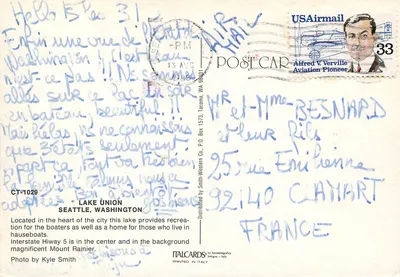 Hello Bões 3!
Enfin une vue de l'autre
Washington! C'est beau
n'est-ce pas!! Ne sommes
allés sur ce lac hier soir
en bateau, beautiful!!
Mais hélas, ns ne connaissons
que 3 états seulement
à part ça tout va très bien
adoptés Bon à bientôt
CT-1029
"LAKE UNION
SEATTLE, WASHINGTON
Located in the heart of the city this lake provides recrea-
tion for the boaters as well as a home for those who live in
houseboats.
Interstate Hiwey 5 is in the center and in the background
magnificent Mount Rainier.
Photo by Kyle Smith
Distributed by Smith-Western Co., P.O. Box 1573, Tacoma, WA
PM
AIR
MAIL
POST CARD
USAirmail
33
Alfred V. Verville
Aviation Pioneer
Mr et Mme BESNARD
et leur fils
25 rue
92140 CLAMART
FRANCE
ITALCARDS
PRINTED IN ITALY